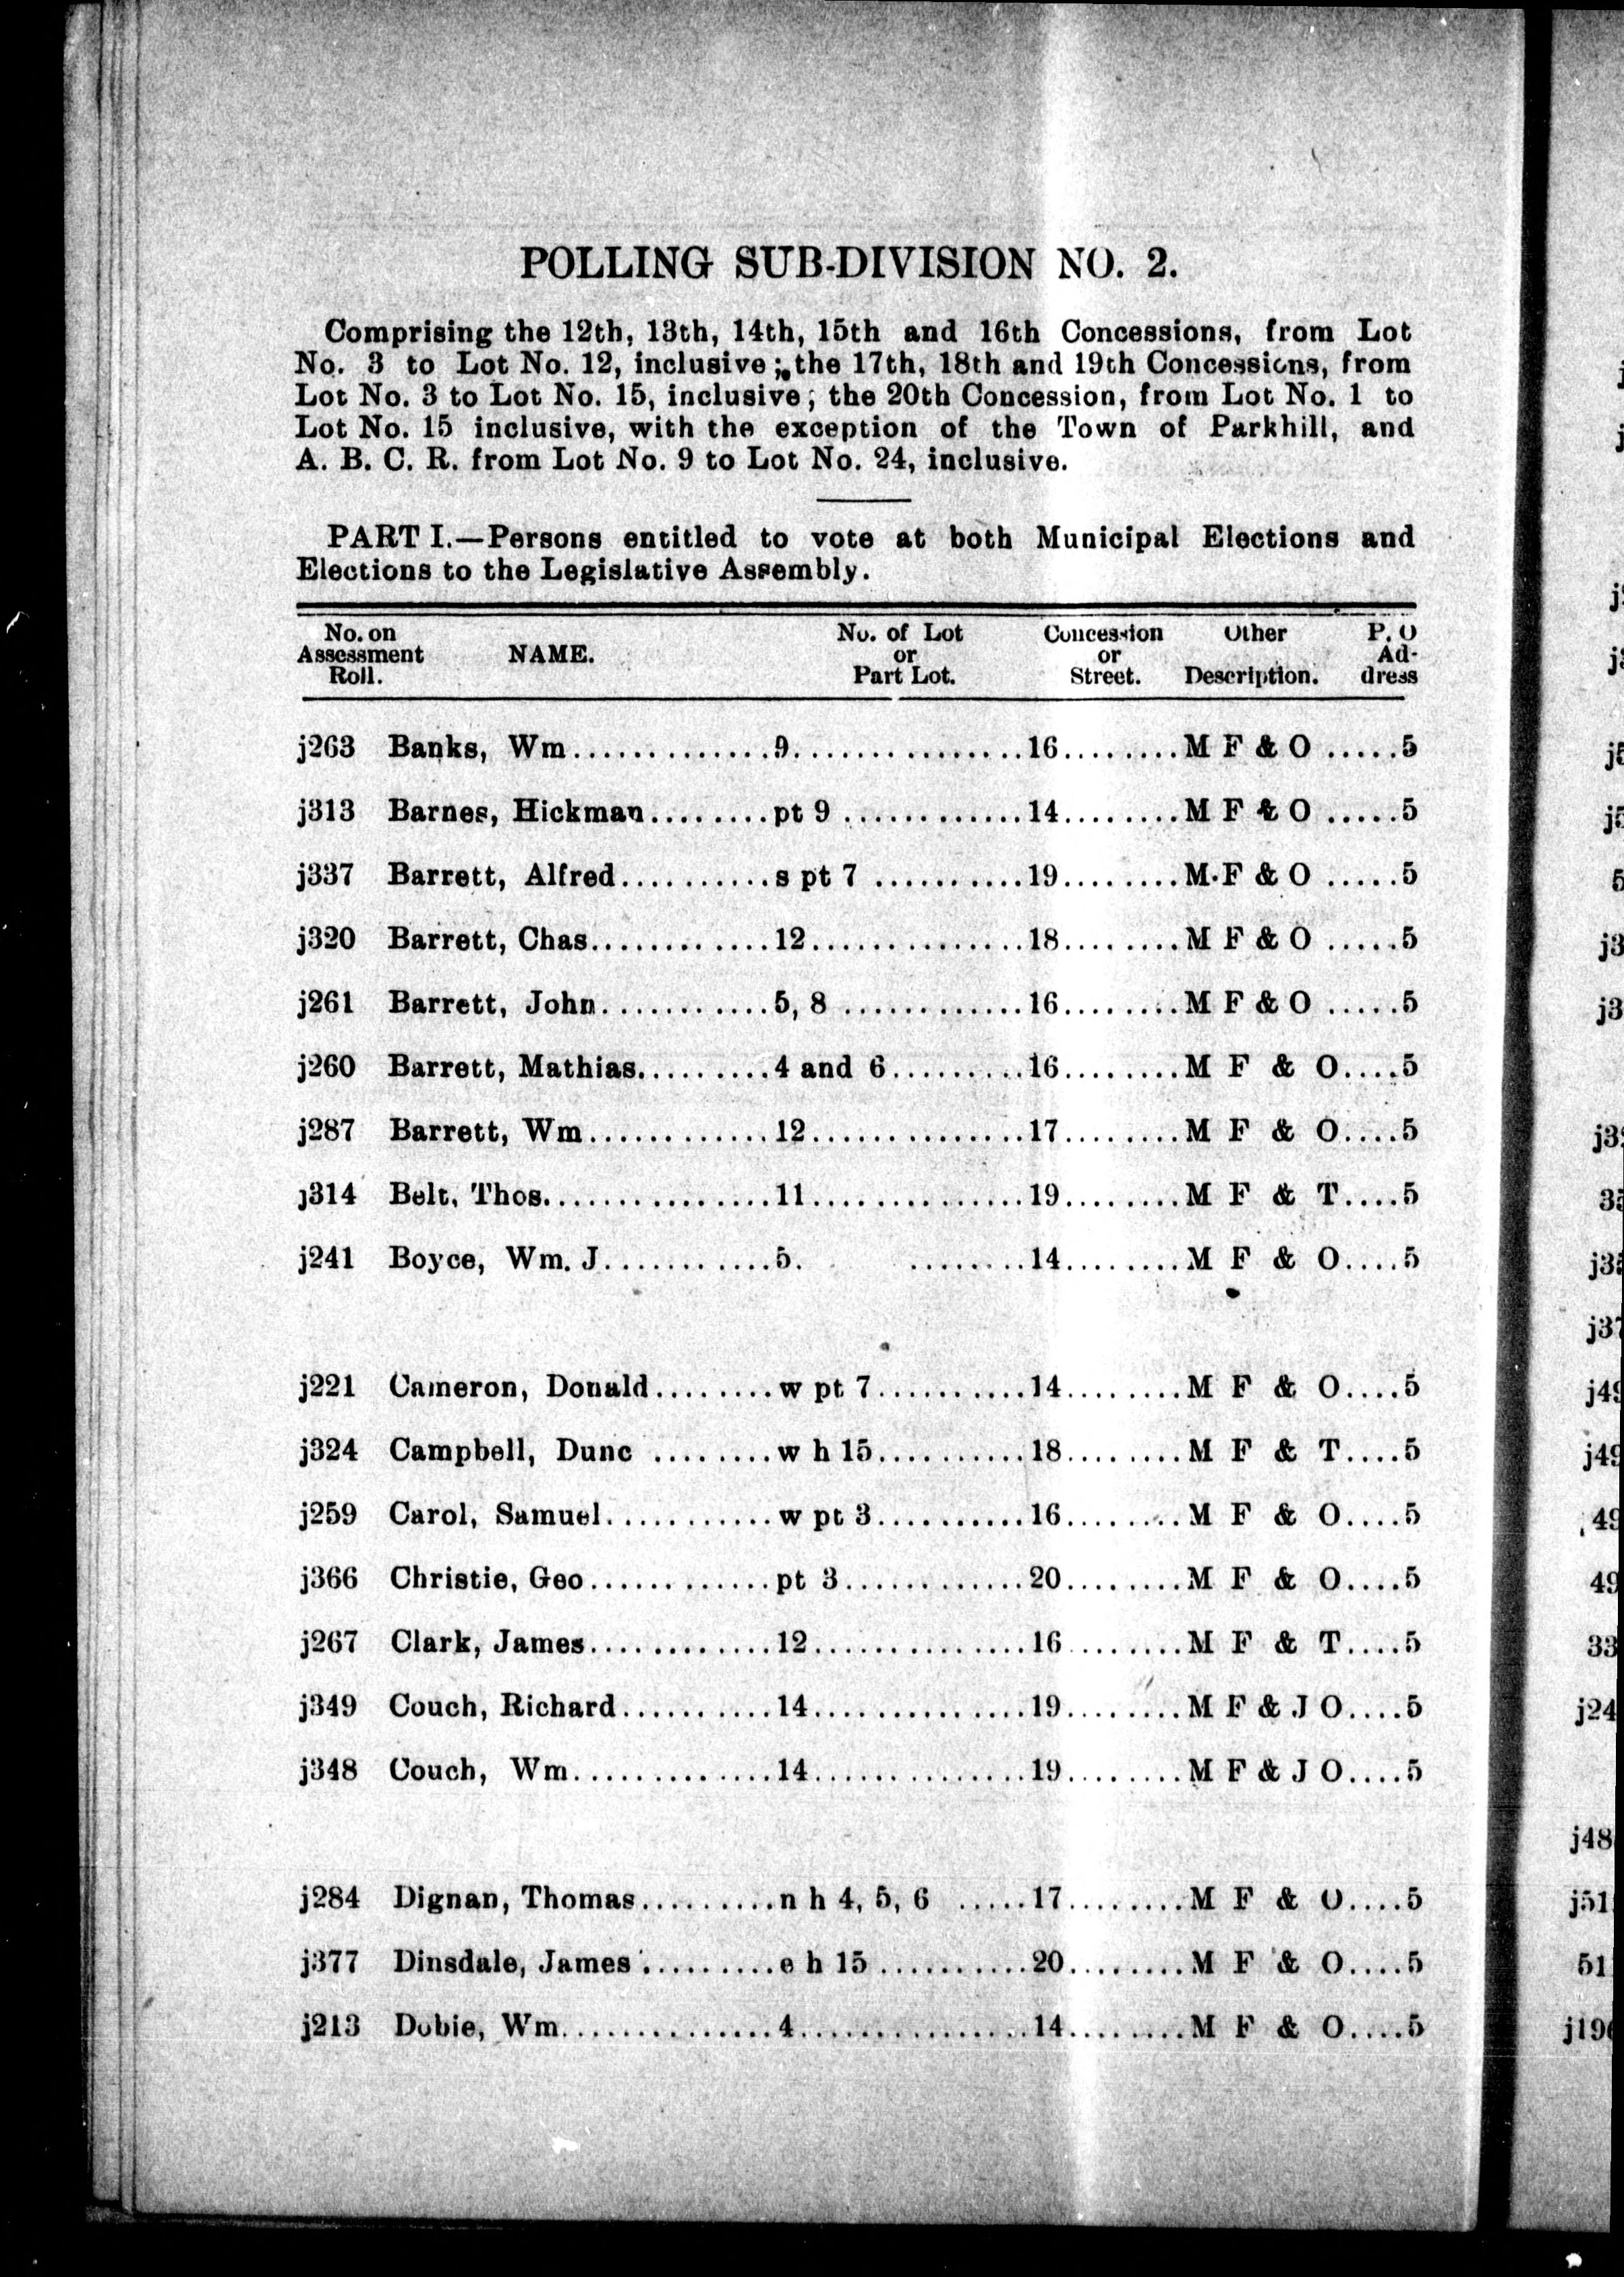 POLLING SUB-DIVISION NO. 2.
Comprising the 12th, 13th, 14th, 15th and 16th Concessions, from Lot
No. 3 to Lot No. 12, inclusive; the 17th, 18th and 19th Concessions, from
Lot No. 3 to Lot No. 15, inclusive; the 20th Concession, from Lot No. 1 to
Lot No. 15 inclusive, with the exception of the Town of Parkhill, and
A. B. C. R. from Lot No. 9 to Lot No. 24, inclusive.
PART I.—Persons entitled to vote at both Municipal Elections and
Elections to the Legislative Assembly.
No. on Assessment Roll. NAME. No. of Lot or Part Lot. Concession or Street. Other Description. P. O Ad-dress
j263 Banks, Wm.............9...............16........M F & O .....5
j313 Barnes, Hickman........pt 9 ............14........M F & O .....5
j337 Barrett, Alfred..........s pt 7 ..........19........M F & O .....5
j320 Barrett, Chas............12..............18........M F & O .....5
j261 Barrett, John...........5, 8 ............16........M F & O .....5
j260 Barrett, Mathias.........4 and 6.........16........M F & O....5
j287 Barrett, Wm............12..............17........M F & O....5
j314 Belt, Thos...............11..............19........M F & T....5
j241 Boyce, Wm. J...........5. ........14........M F & O....5
j221 Cameron, Donald........w pt 7..........14........M F & O....5
j324 Campbell, Dunc ........w h 15..........18........M F & T....5
j259 Carol, Samuel...........w pt 3..........16........M F & O....5
j366 Christie, Geo............pt 3............20........M F & O....5
j267 Clark, James............12..............16........M F & T....5
j349 Couch, Richard..........14..............19........M F & J O....5
j348 Couch, Wm.............14..............19........M F & J O....5
j284 Dignan, Thomas.........n h 4, 5, 6 .....17........M F & O....5
j377 Dinsdale, James.........e h 15 ..........20........M F & O....5
j213 Dobie, Wm..............4...............14........M F & O....5